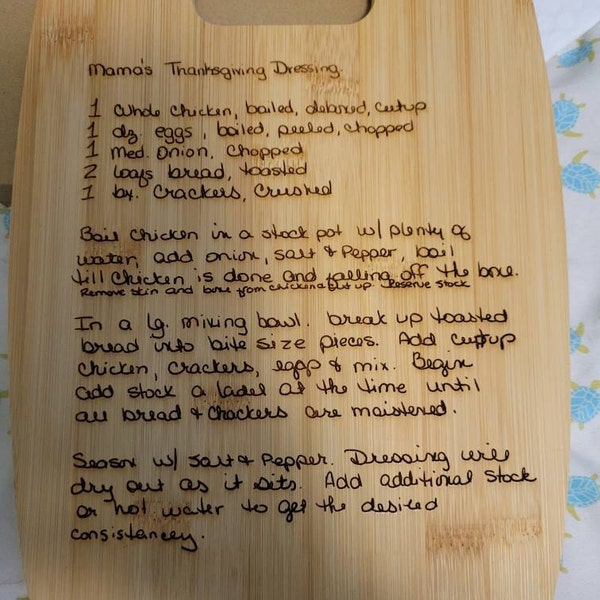 Mama's Thanksgiving Dressing.
1 Whole chicken, boiled, deboned, cutup
1 dz. eggs, boiled, peeled, chopped
1 med. Onion, Chopped
2 loafs bread, toasted
1 bx. Crackers, Crushed
Boil chicken in a stock pot w/ plenty of
water, add onion, salt & Pepper, boil
till chicken is done and falling off the bone.
Remove skin and bone from chicken & cut up. Reserve stock
In a lg. mixing bowl. break up toasted
bread into bite size pieces. Add cutup
chicken, crackers, eggs & mix. Begin
add stock a ladel at the time until
all bread & chackers are moistened.
Season w/ salt & Pepper. Dressing will
dry out as it sits. Add additional stock
or hot water to get the desired
consistancey.